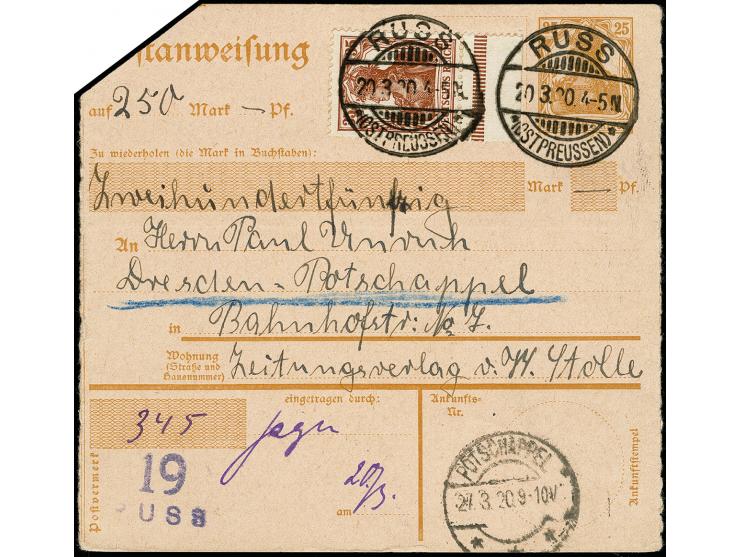 stanweisung
25 25
RUSS
20.3.20.4-5N.
*(OSTPREUSSEN)*
RUSS
20.3.20.4-5N.
*(OSTPREUSSEN)*
auf 250 Mark — Pf.
Zu wiederholen (die Mark in Buchstaben):
Zweihundertfünfzig Mark — Pf.
An Herrn Paul Unruh
Dresden-Potschappel
in Bahnhofstr. No 7.
Wohnung
(Straße und
Hausnummer)
Zeitungsverlag v. W. Stolle
eingetragen durch:
Ankunfts-
Nr.
345
Postvermerk
19
RUSS
am 20/3.
POTSCHAPPEL
27.3.20.9-10V
Ankunftstempel